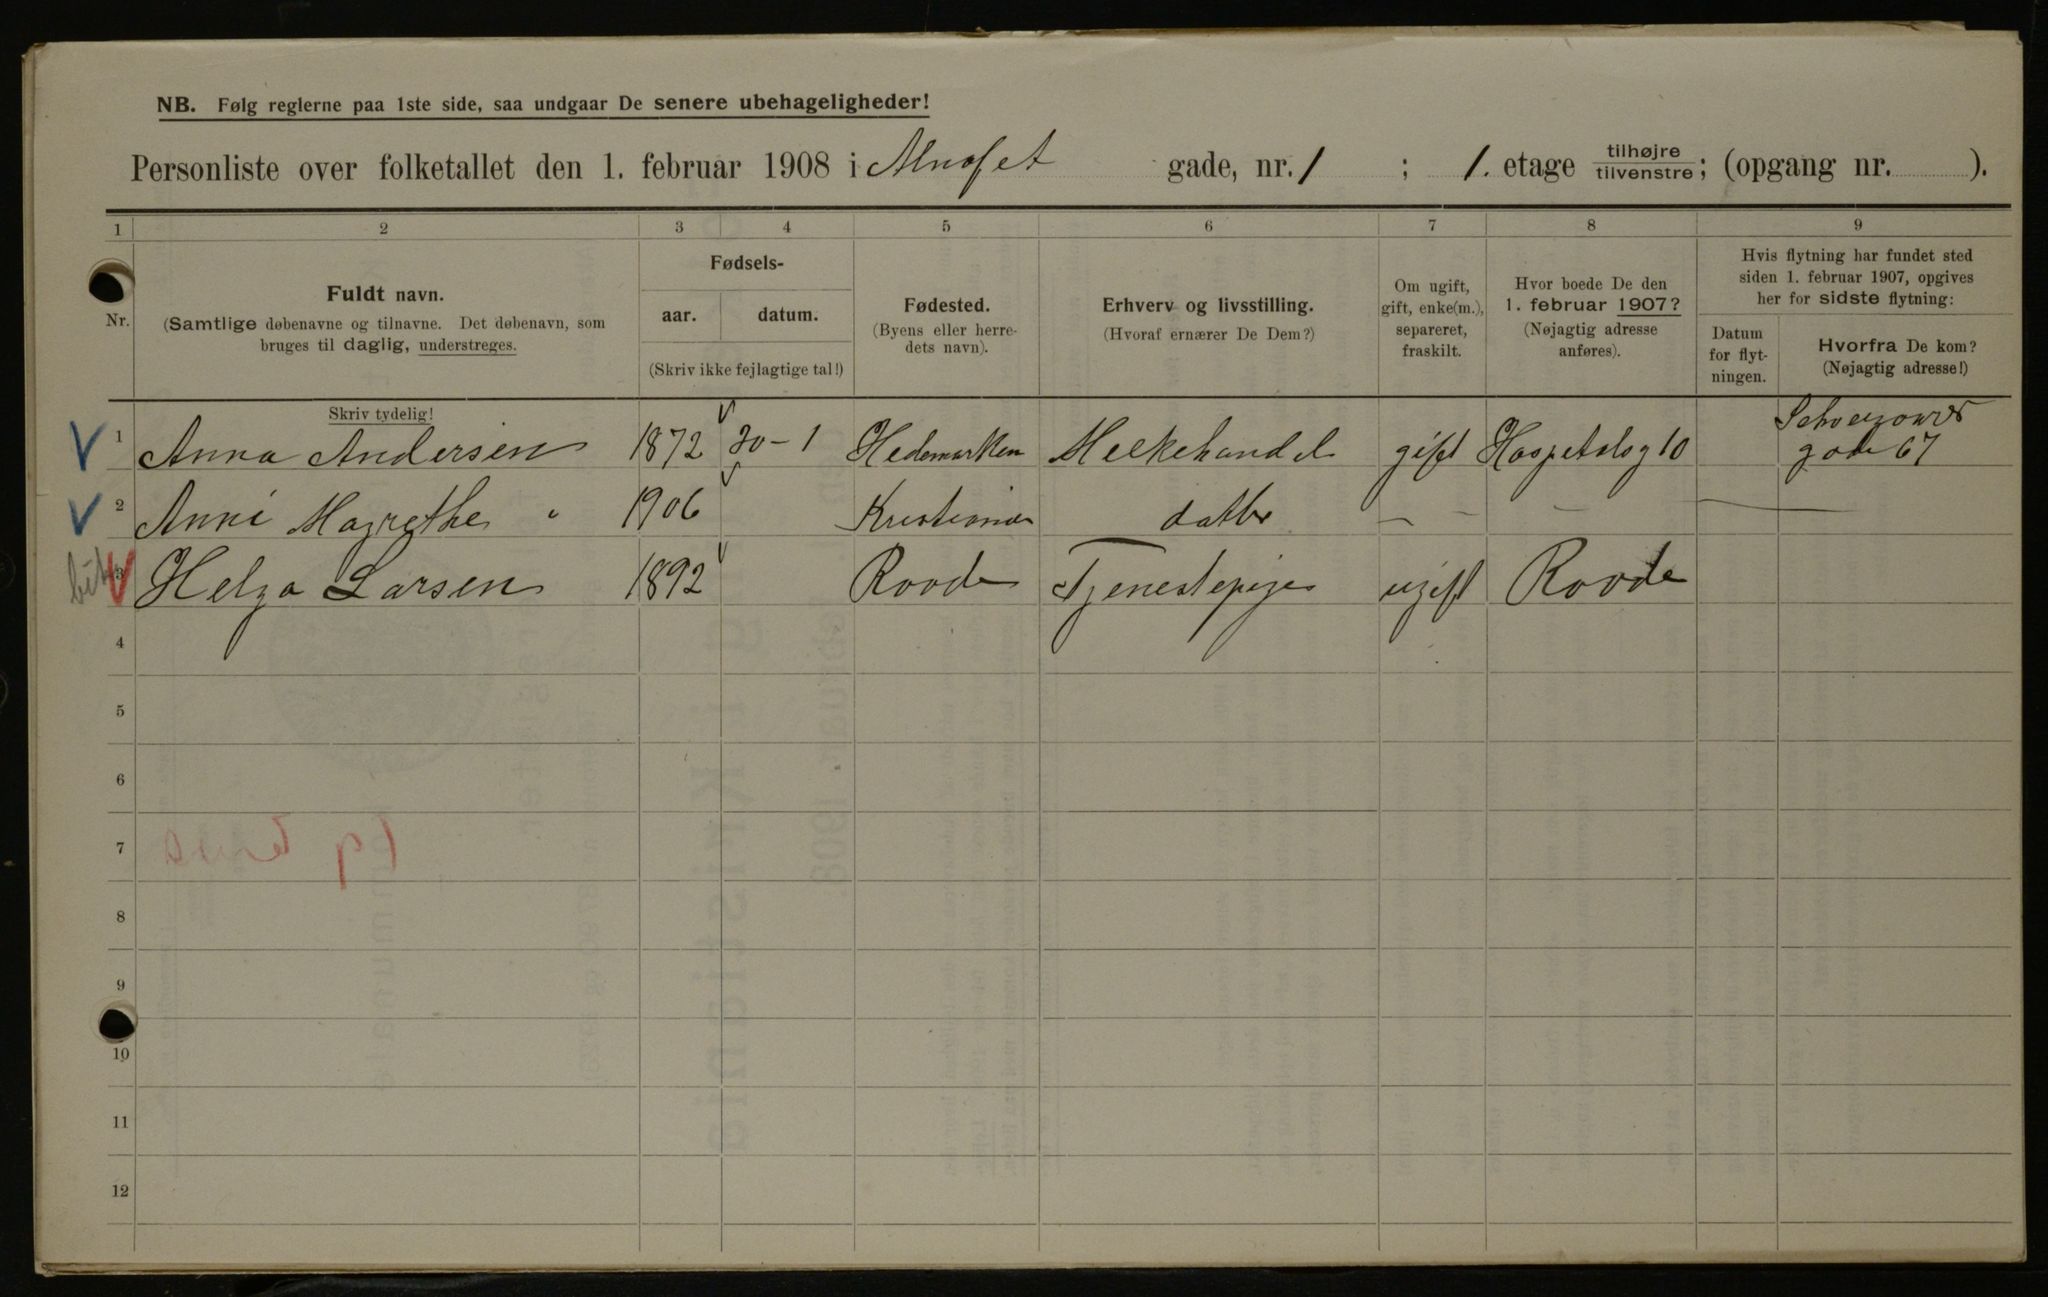 NB. Følg reglerne paa 1ste side, saa undgaar De senere ubehageligheder!
Personliste over folketallet den 1. februar 1908 i gade, nr. 1 ; 1. etage tilhøjre tilvenstre; (opgang nr. ).
1 2 3 4 5 6 7 8 9
Nr.
Fuldt navn.
(Samtlige døbenavne og tilnavne. Det døbenavn, som
bruges til daglig, understreges.
Skriv tydelig!
Fødsels-
aar. datum.
(Skriv ikke fejlagtige tal!)
Fødested.
(Byens eller herre-
dets navn).
Erhverv og livsstilling.
(Hvoraf ernærer De Dem?)
Om ugift,
gift, enke(m.),
separeret,
fraskilt.
Hvor boede De den
1. februar 1907?
(Nøjagtig adresse
anføres).
Hvis flytning har fundet sted
siden 1. februar 1907, opgives
her for sidste flytning:
Datum
for flyt-
ningen.
Hvorfra De kom?
(Nøjagtig adresse!)
1 Anna Andersen 1872 30-1 Hedemarken Melkehandel gift Hospitalsg 10 gade 67
2 Anni Magrethe " 1906 Kristiania datter - - - -
3 Helga Larsen 1892 Roode Tjenestepige ugift Roode
4
5
6
7
8
9
10
11
12